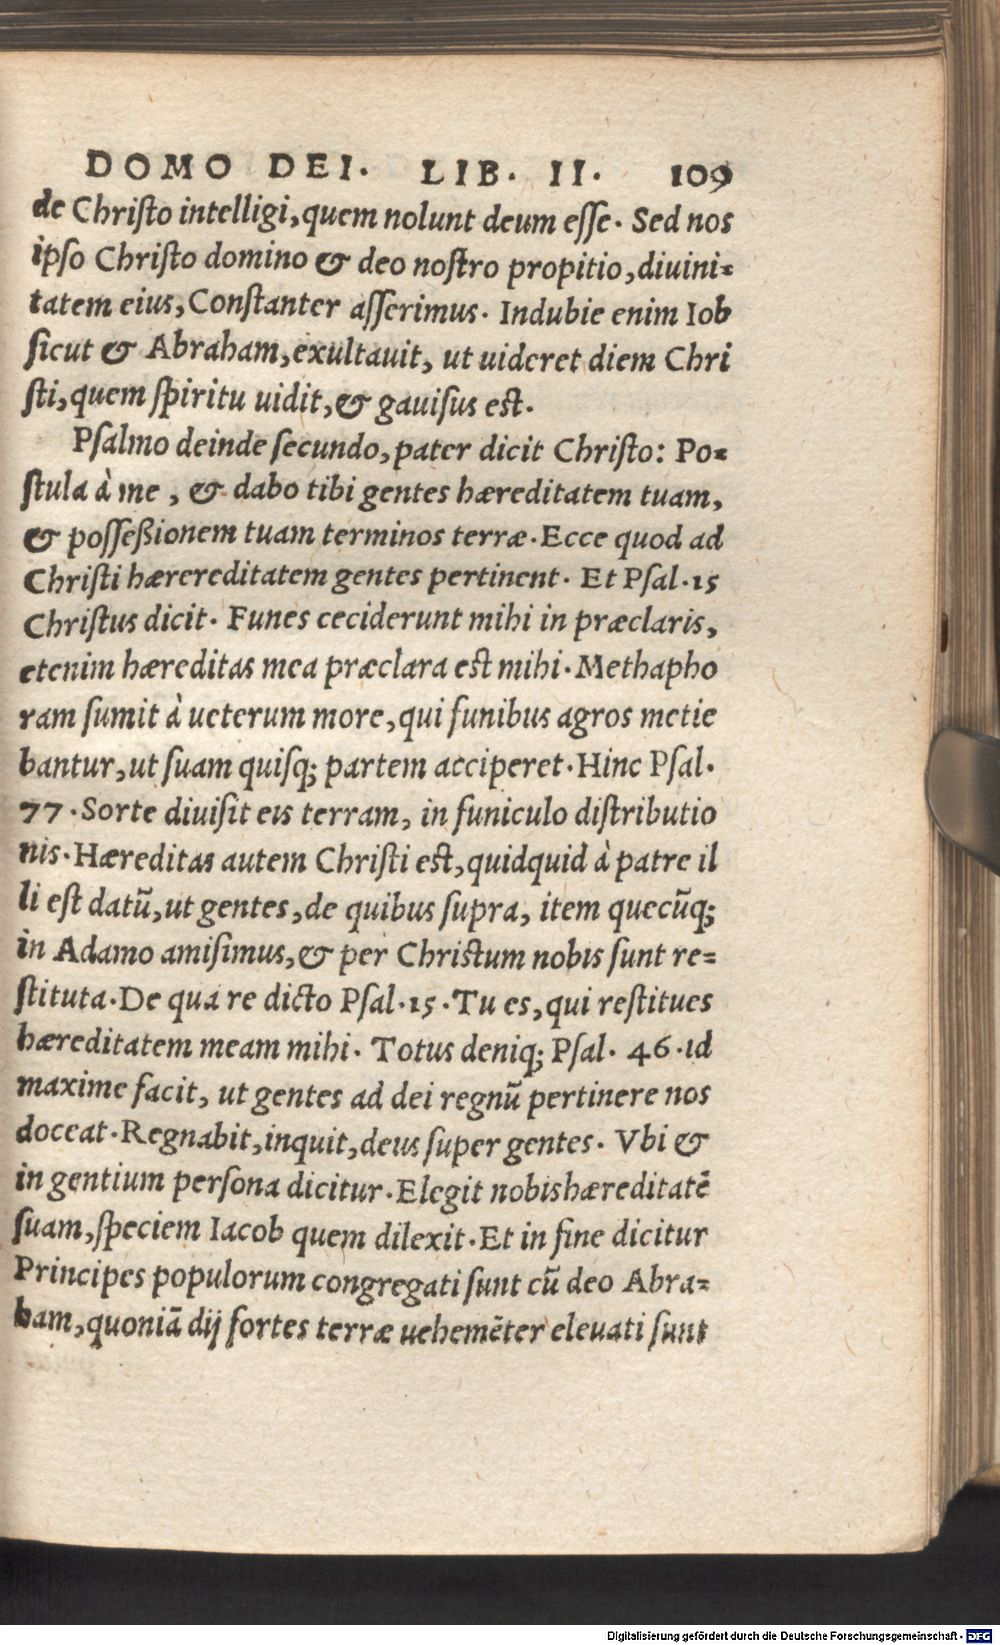 DOMO DEI. LIB. II. 109
de Chriſto intelligi, quem nolunt deum eſſe. Sed nos
ipſo Chriſto domino & deo noſtro propitio, diuini-
tatem eius, Conſtanter aſſerimus. Indubie enim Iob
ſicut & Abraham, exultauit, ut uideret diem Chri
ſti, quem ſpiritu uidit, & gauiſus eſt.
Pſalmo deinde ſecundo, pater dicit Chriſto: Po-
ſtula à me, & dabo tibi gentes hæreditatem tuam,
& poſſeßionem tuam terminos terræ. Ecce quod ad
Chriſti hærereditatem gentes pertinent. Et Pſal. 15
Chriſtus dicit. Funes ceciderunt mihi in præclaris,
etenim hæreditas mea præclara eſt mihi. Methapho
ram ſumit à ueterum more, qui funibus agros metie
bantur, ut ſuam quiſq; partem acciperet. Hinc Pſal.
77. Sorte diuiſit eis terram, in funiculo diſtributio
nis. Hæreditas autem Chriſti eſt, quidquid à patre il
li eſt datũ, ut gentes, de quibus ſupra, item quecũq;
in Adamo amiſimus, & per Christum nobis ſunt re-
ſtituta. De qua re dicto Pſal. 15. Tu es, qui reſtitues
hæreditatem meam mihi. Totus deniq; Pſal. 46. id
maxime facit, ut gentes ad dei regnũ pertinere nos
doceat. Regnabit, inquit, deus ſuper gentes. Vbi &
in gentium perſona dicitur. Elegit nobis hæreditatē
ſuam, ſpeciem Iacob quem dilexit. Et in fine dicitur
Principes populorum congregati ſunt cũ deo Abra-
ham, quoniā dij fortes terræ uehemēter eleuati ſunt
Digitalisierung gefördert durch die Deutsche Forschungsgemeinschaft - DFG